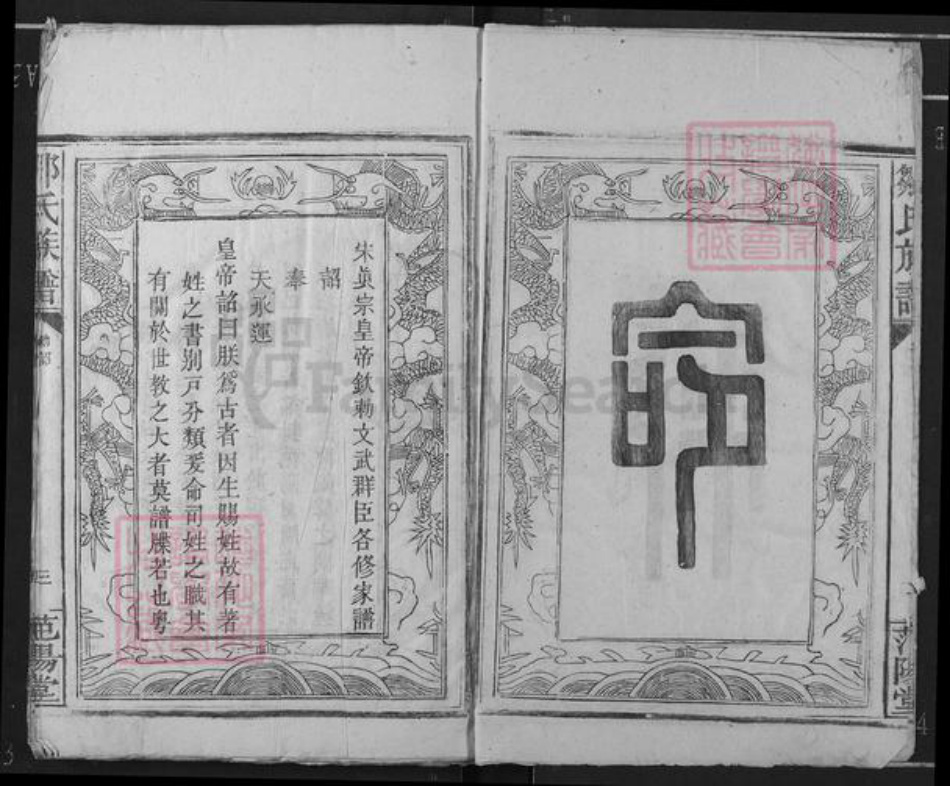 鄒氏族譜
范陽堂
命
宋真宗皇帝欽勅文武群臣各修家譜
詔
奉
天承運
皇帝詔曰朕爲古者因生賜姓故有著
姓之書別戸分類爰命司姓之職其
有關於世教之大者莫譜牒若也粤
氏族譜
三
范陽堂
FamilySearch